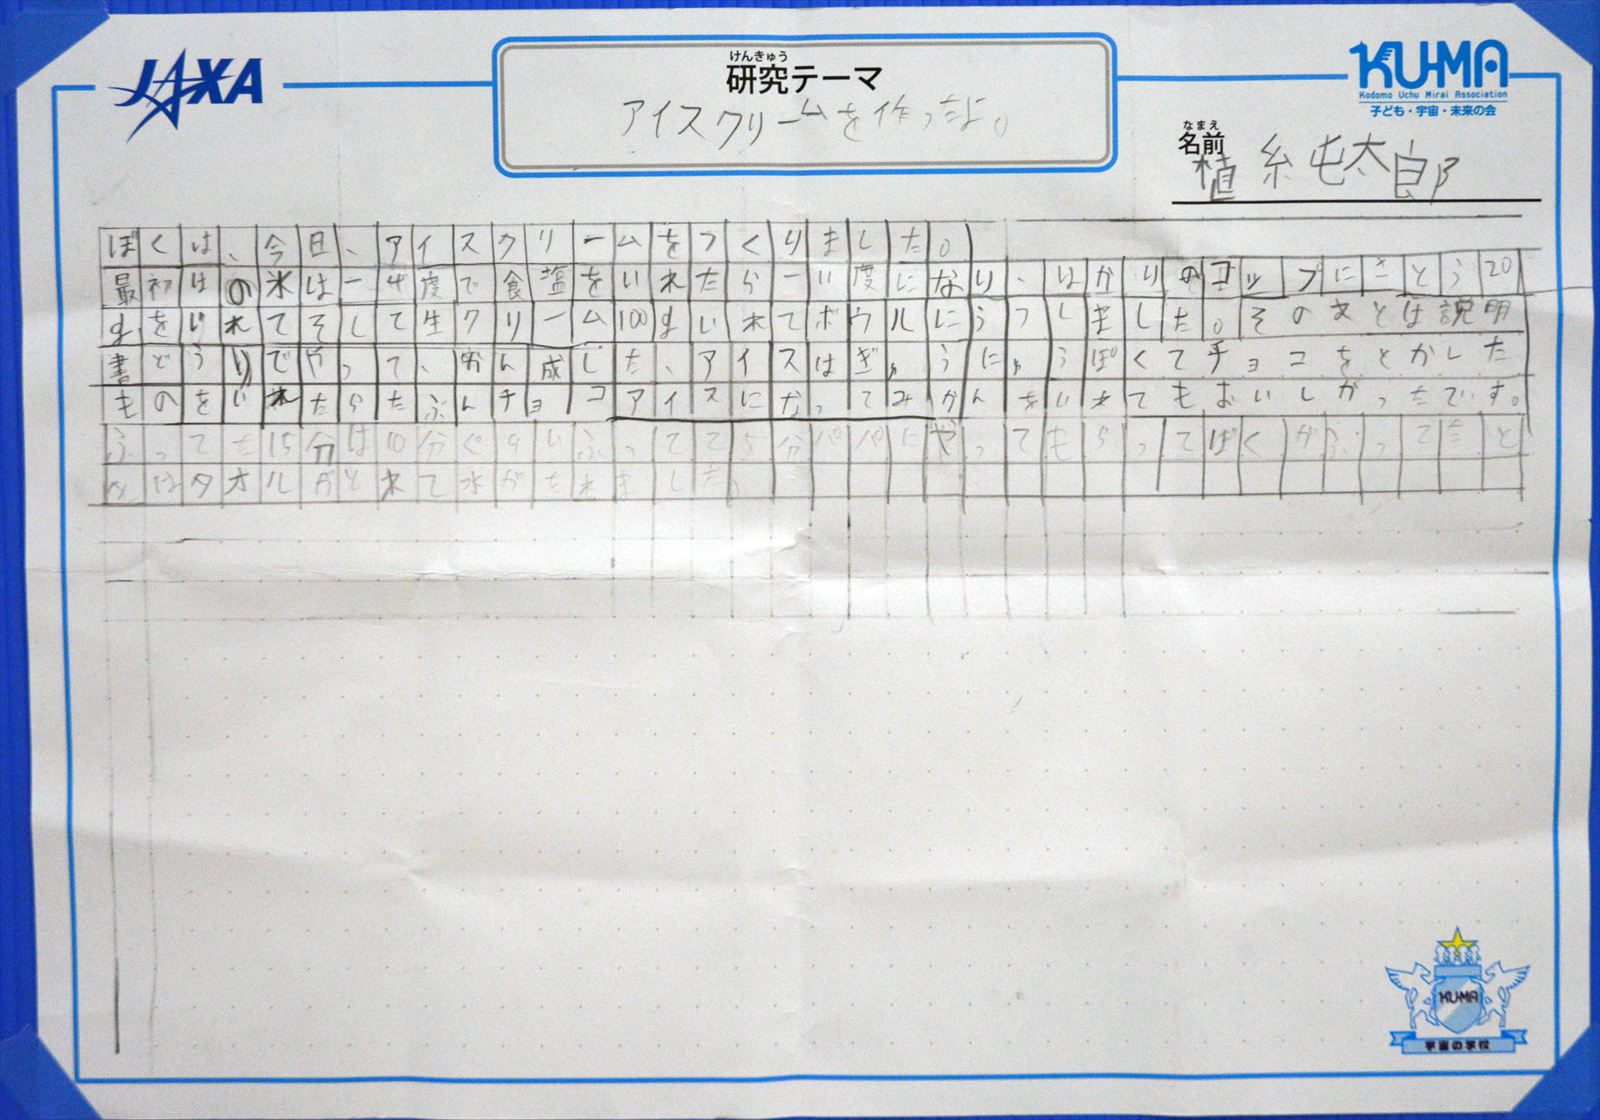 JAXA
けんきゅう
研究テーマ
アイスクリームを作ったよ。
KU-MA
Kodomo Uchu Mirai Association
子ども・宇宙・未来の会
なまえ
名前
植 純太郎
ぼくは、今日、アイスクリームをつくりました。
最初はの氷は一4度で食塩をいれたら一11度になり、はかりのコップにさとう20
gをいれてそして生クリーム100gいれてボウルにうつしました。そのあとは説明
書どうりでやって、かん成した、アイスはぎゅうにゅうぽくてチョコをとかした
ものをいれたらたぶんチョコアイスになってみかんをいれてもおいしかったです。
ふってた15分は10分ぐらいふってて5分パパにやってもらってぼくがふってたと
きはタオルがとれて水がたれました。
KUMA
宇宙の学校